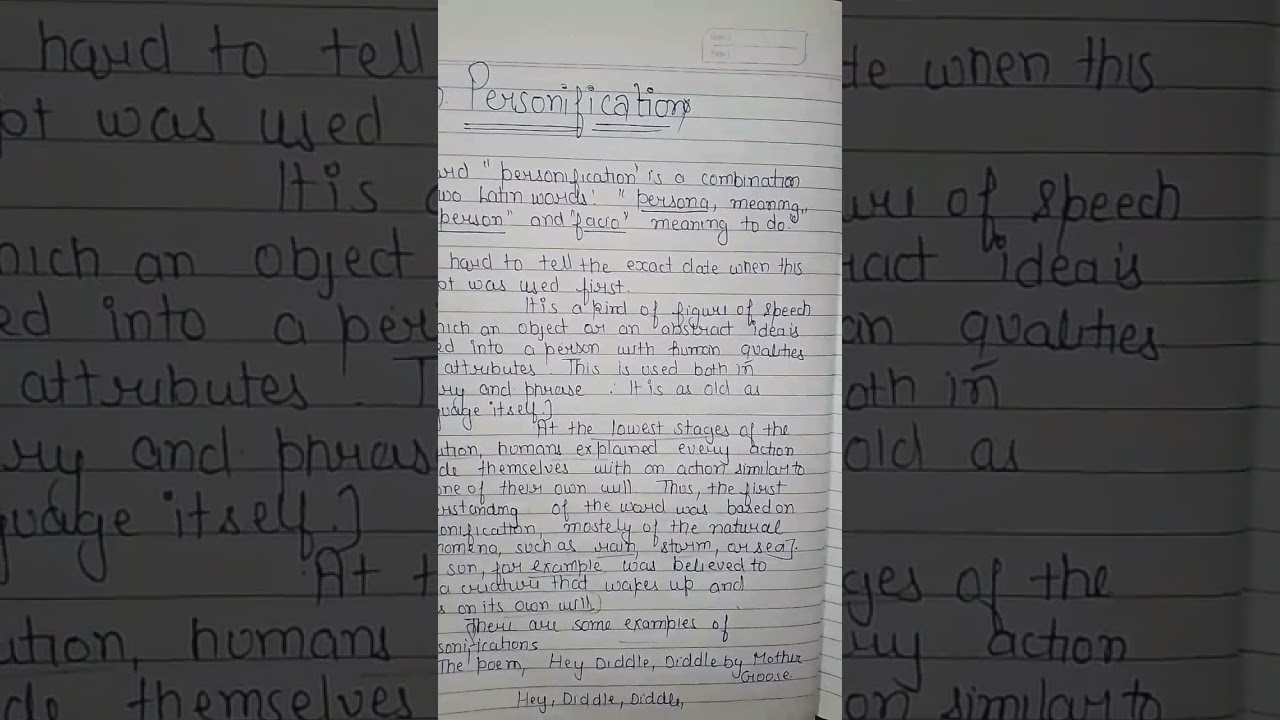 Personification
ord "personification' is a combination
wo Latin words: "persona, meaning"
person" and "facio" meaning to do."
hard to tell the exact date when this
pt was used first.
It is a kind of figure of speech
hich an object or an abstract idea is
ed into a person with human qualities
attributes. This is used both in
ry and phrase : It is as old as
guage itself.]
At the lowest stages of the
ution, humans explained every action
de themselves with an action similar to
one of their own will Thus, the first
erstanding of the word was based on
onification, mostely of the natural
nomena, such as rain, storm, or sea].
son, for example was believed to
a criature that wakes up and
s on its own will)
There are some examples of
sonifications
The poem, Hey Diddle, Diddle by Mother
Goose.
Hey, Diddle, Diddle,